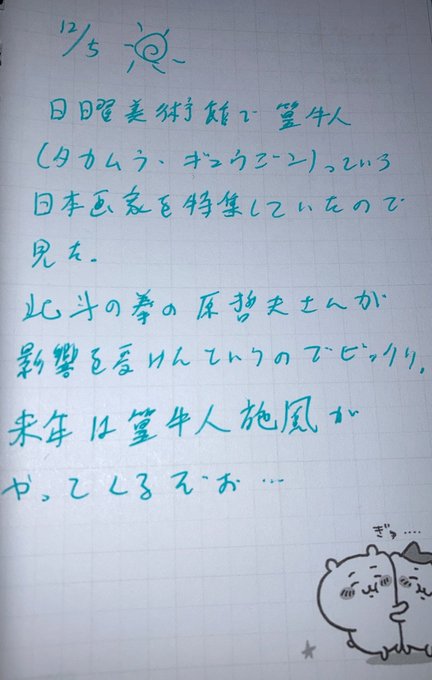 12/5
日曜美術館で篁牛人
(タカムラ・ギュウジン)っていう
日本画家を特集していたので
見た。
北斗の拳の原哲夫さんが
影響を受けんていうのでビックリ。
来年は篁牛人旋風が
やってくるぞお…
ぎゅ....